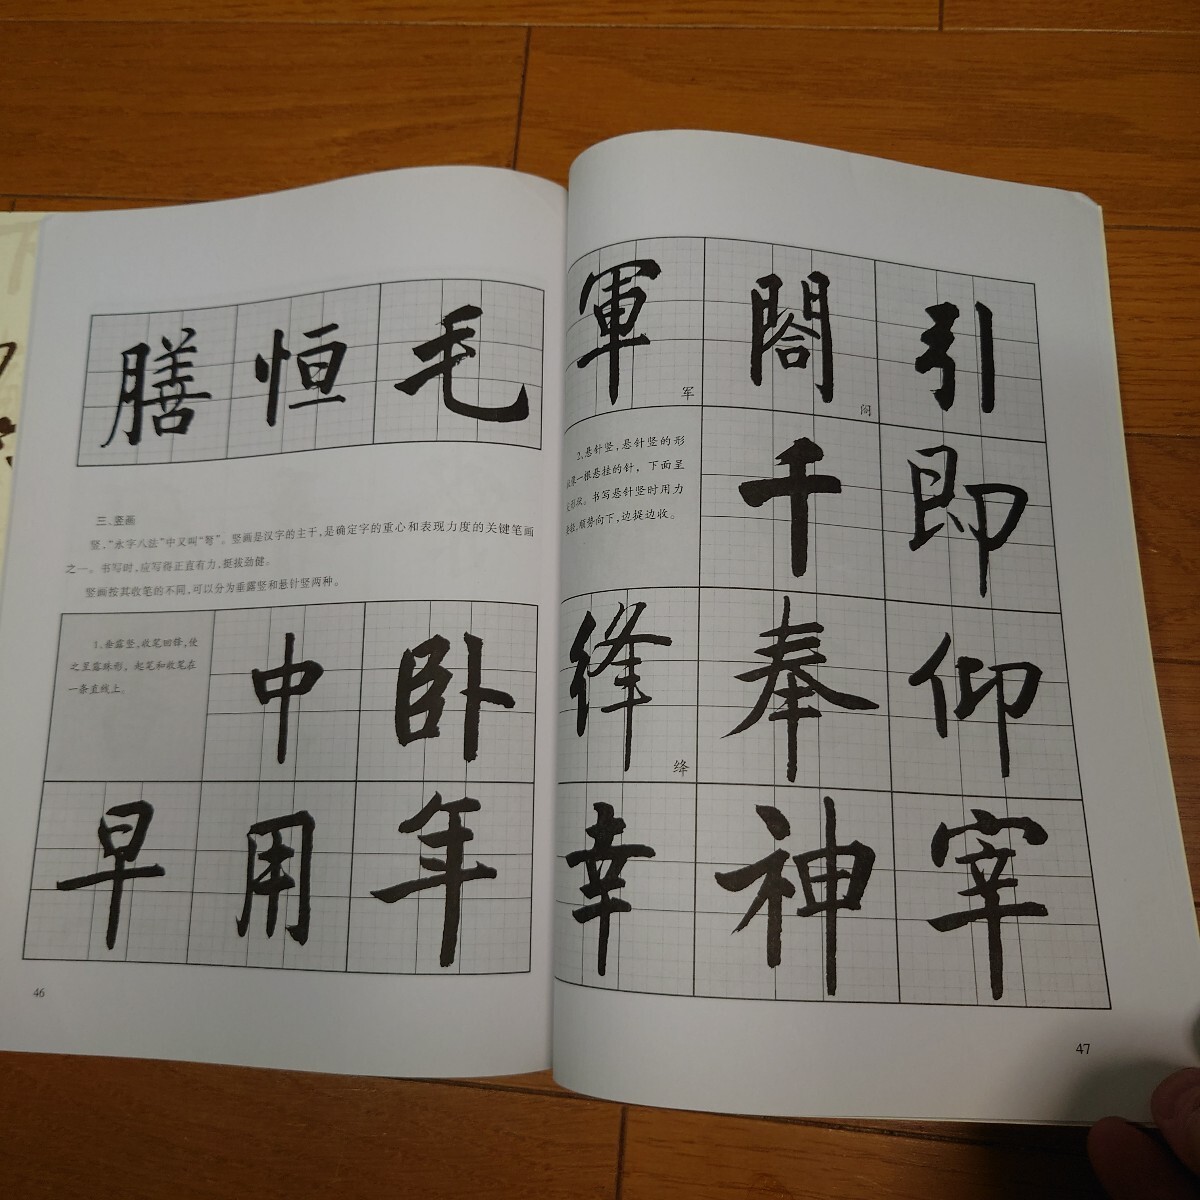 膳 恒 毛
三、竖画
竖，“永字八法”中又叫“弩”。竖画是汉字的主干，是确定字的重心和表现力度的关键笔画
之一。书写时，应写得正直有力，挺拔劲健。
竖画按其收笔的不同，可以分为垂露竖和悬针竖两种。
1、垂露竖，收笔回锋，使
之呈露珠形。起笔和收笔在
一条直线上。
中 卧
早 用 年
46
軍 閤 引
军 阁
2、悬针竖，悬针竖的形
一根悬挂的针，下面呈
形状。书写悬针竖时用力
顺势向下，边提边收。
千 即
絳 奉 仰
绛
幸 神 宰
47